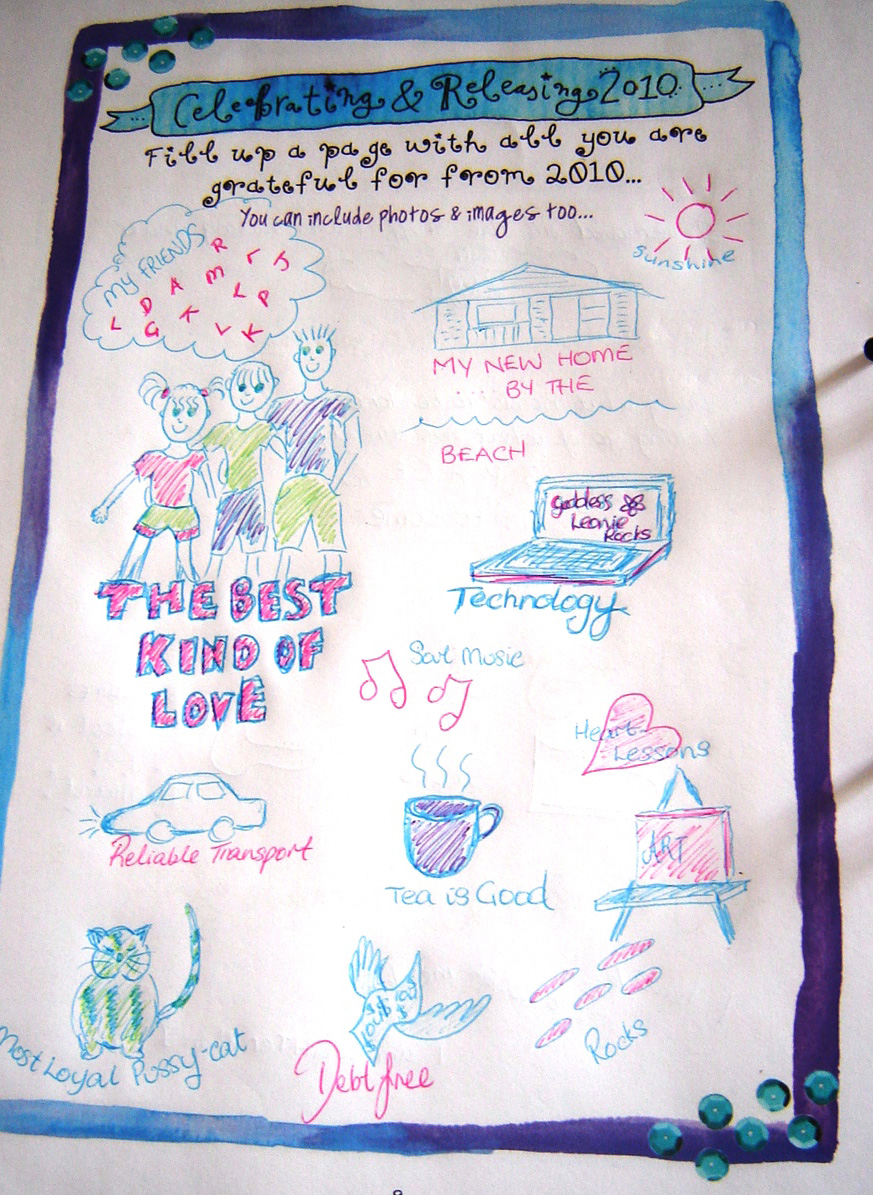 Celebrating & Releasing 2010
Fill up a page with all you are
grateful for from 2010...
You can include photos & images too...
sunshine
MY FRIENDS
R
L D A M L K
L G K L P
V K
MY NEW HOME
BY THE
BEACH
goddess
Leonie
Rocks
Technology
THE BEST
KIND OF
LOVE
Soul Music
Heart
Lessons
Reliable Transport
Tea is Good
ART
Most Loyal Pussy-cat
Debt free
Rocks